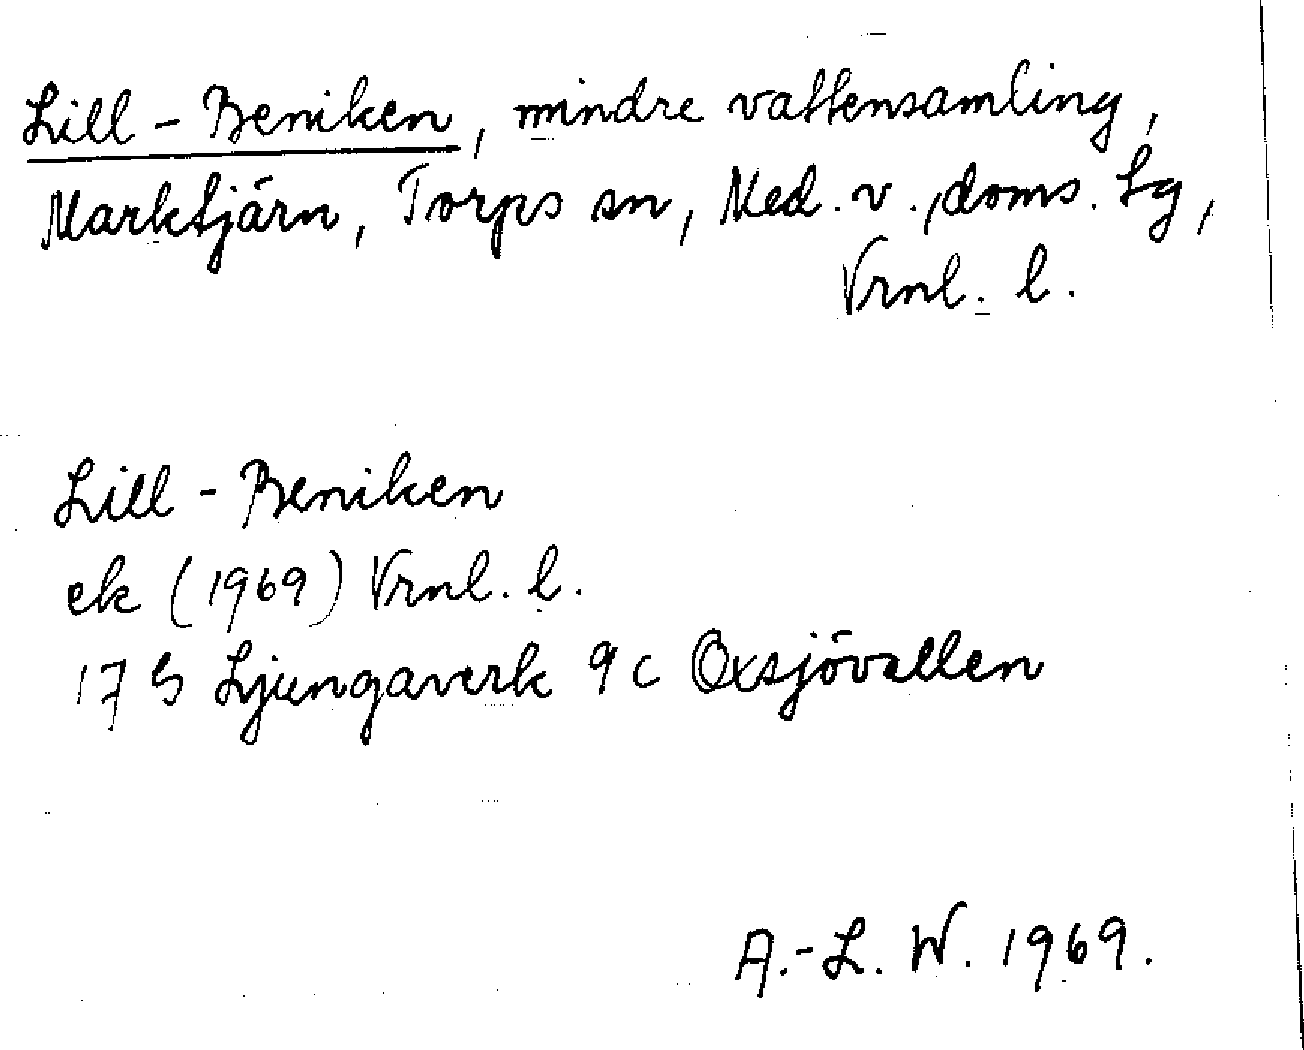 Lill-Beniken, mindre vattensamling,
Marktjärn, Torps sn, Med. v., doms. tg,
Vrnl. l.
Lill-Beniken
ek (1969) Vrnl. l.
17 G Ljungaverk 9c Oxsjövallen
A.-L. W. 1969.